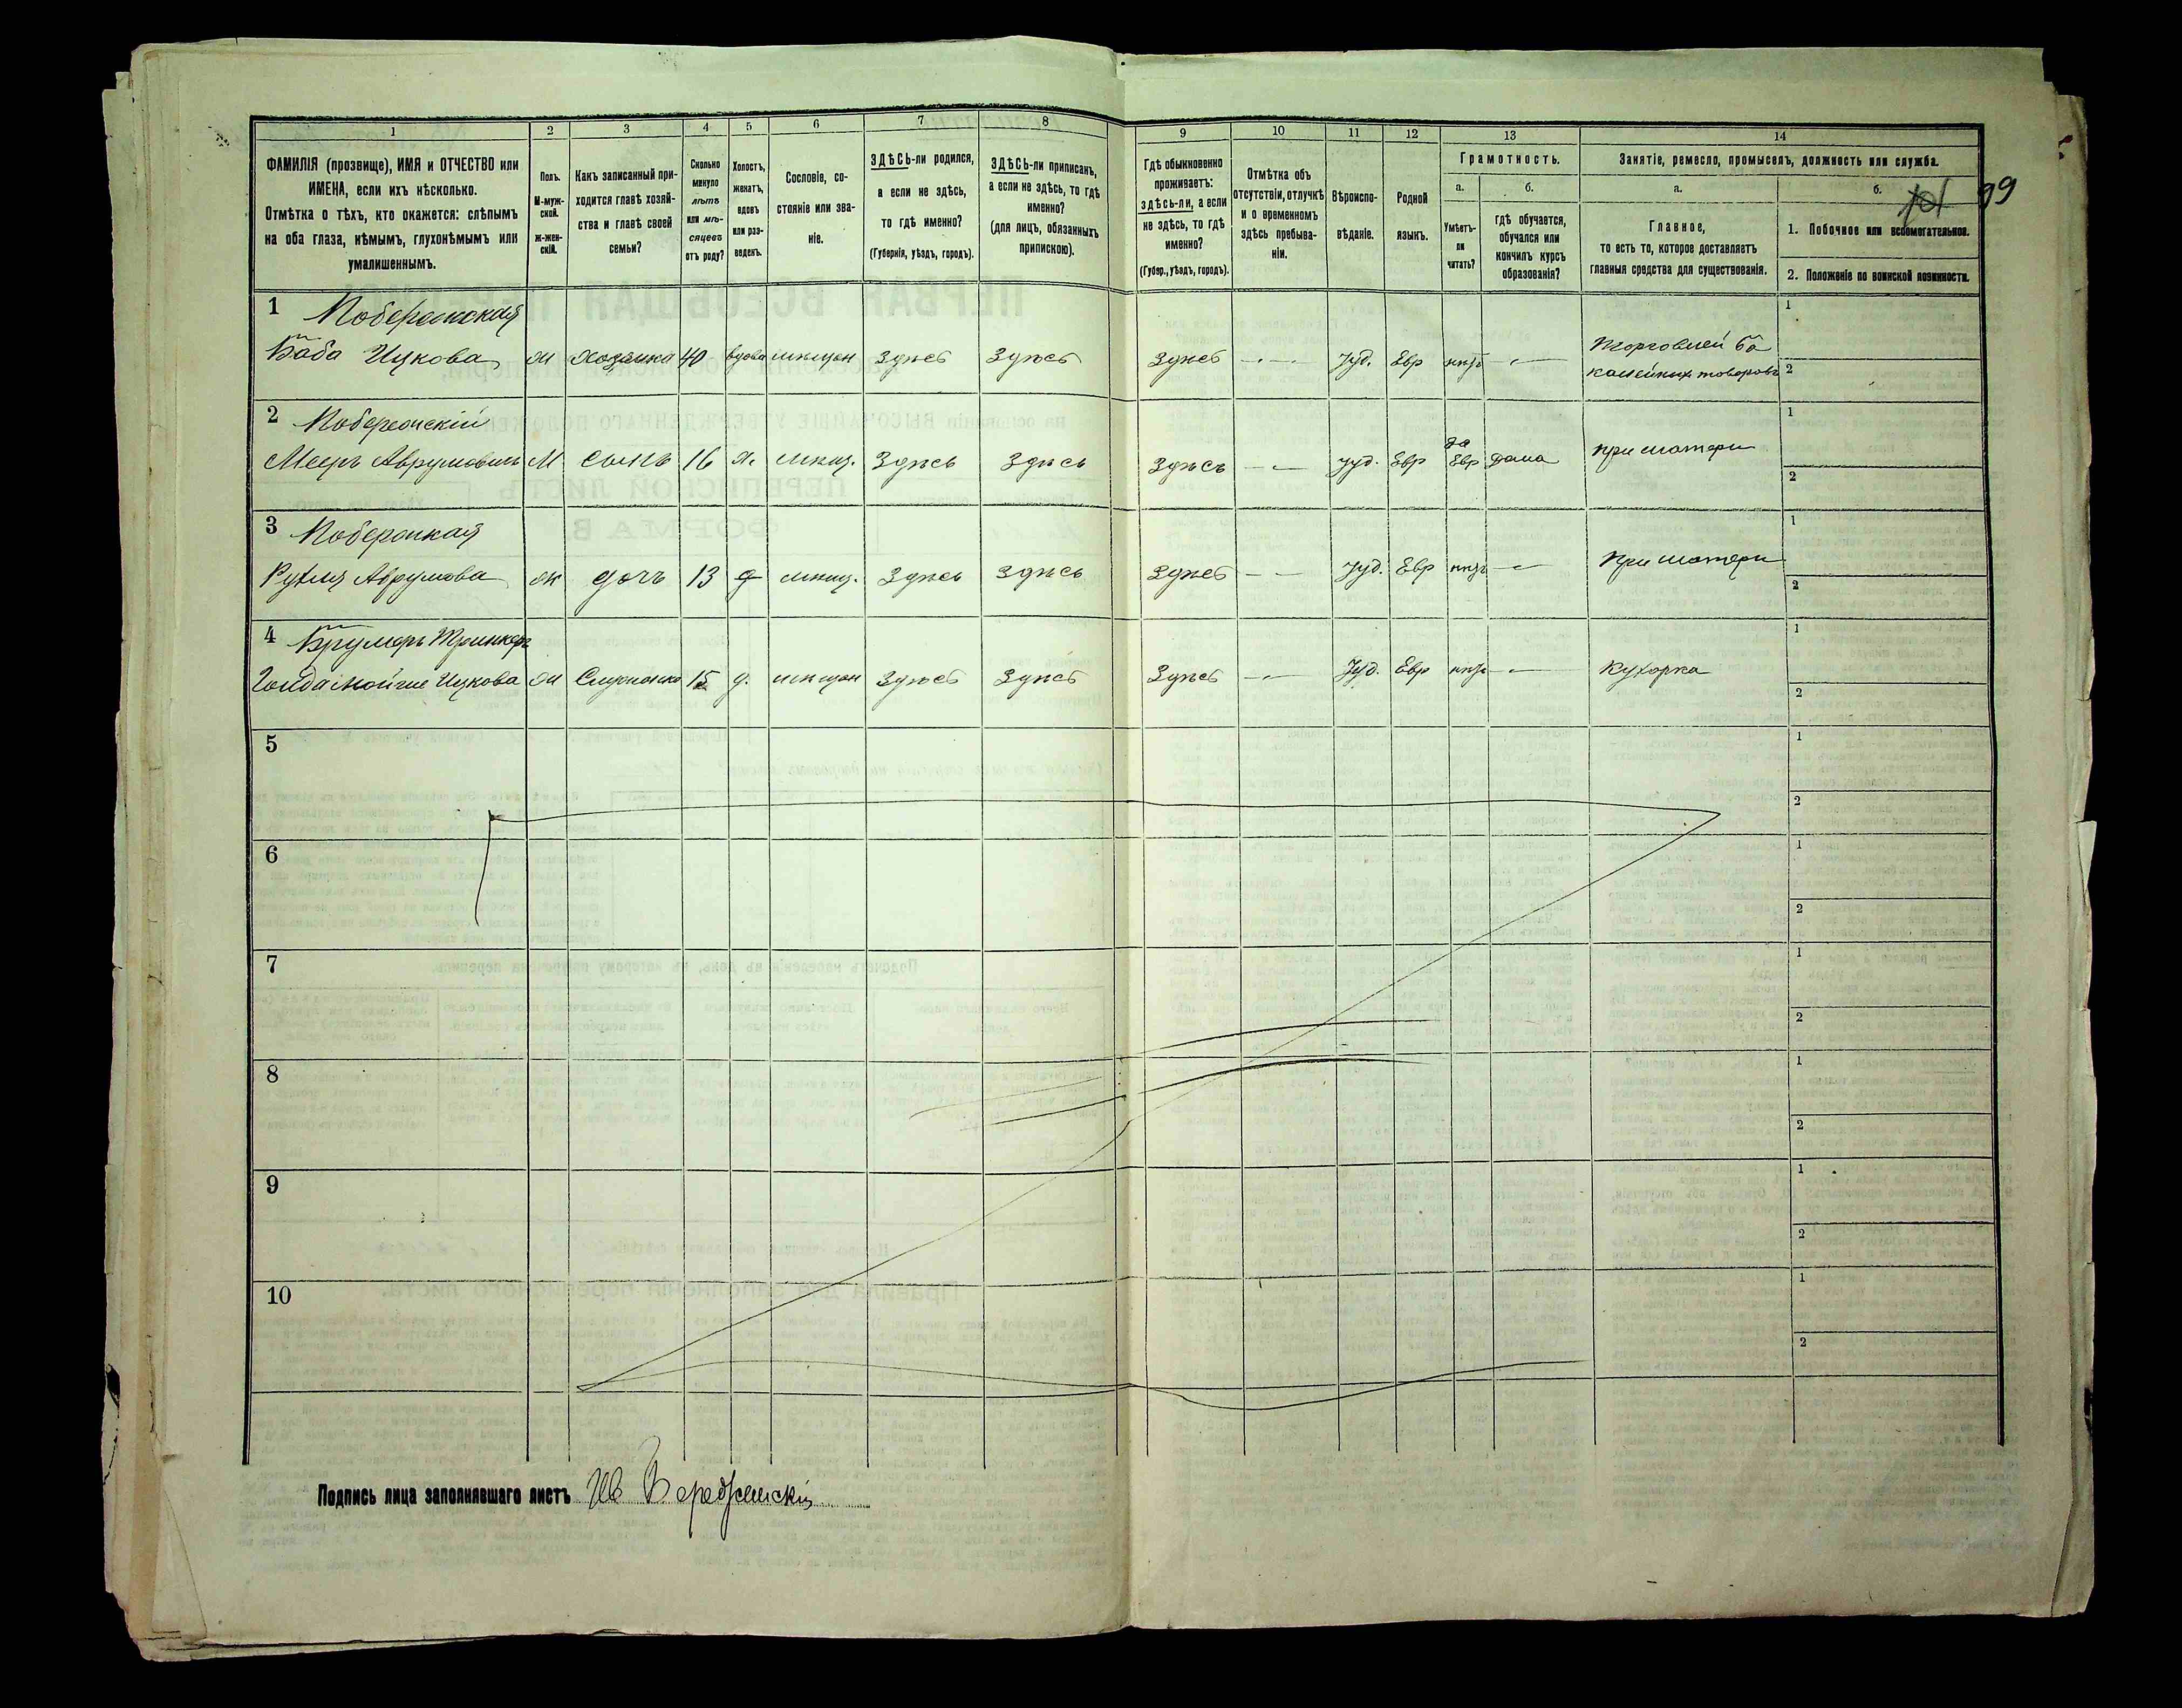 1 2 3 4 5 6 7 8 9 10 11 12 13 14
ФАМИЛІЯ (прозвище), ИМЯ и ОТЧЕСТВО или
ИМЕНА, если ихъ нѣсколько.
Отмѣтка о тѣхъ, кто окажется: слѣпымъ
на оба глаза, нѣмымъ, глухонѣмымъ или
умалишеннымъ.
Полъ.
М-муж-
ской.
Ж-жен-
скій.
Какъ записанный при-
ходится главѣ хозяй-
ства и главѣ своей
семьи?
Сколько
минуло
лѣтъ
или мѣ-
сяцевъ
отъ роду?
Холостъ,
женатъ,
вдовъ
или раз-
веденъ.
Сословіе, со-
стояніе или зва-
ніе.
ЗДѢСЬ-ли родился,
а если не здѣсь,
то гдѣ именно?
(Губернія, уѣздъ, городъ).
ЗДѢСЬ-ли приписанъ,
а если не здѣсь, то гдѣ
именно?
(для лицъ, обязанныхъ
припискою).
Гдѣ обыкновенно
проживаетъ:
здѣсь-ли, а если
не здѣсь, то гдѣ
именно?
(Губер., уѣздъ, городъ).
Отмѣтка объ
отсутствіи, отлучкѣ
и о временномъ
здѣсь пребыва-
ніи.
Вѣроиспо-
вѣданіе.
Родной
языкъ.
Грамотность.
а.
Умѣетъ-
ли
читать?
б.
гдѣ обучается,
обучался или
кончилъ курсъ
образованія?
Занятіе, ремесло, промыселъ, должность или служба.
а.
Главное,
то есть то, которое доставляетъ
главныя средства для существованія.
б.
101 99
1. Побочное или вспомогательное.
2. Положеніе по воинской повинности.
1 Побережская
Баба Ицкова ж хозяйка 40 вдова мѣщан здѣсь здѣсь здѣсь — Іуд. Евр нѣтъ — Торговлей ба
калейныхъ товаровъ
1
2
2 Побережскій
Мееръ Аврумовичъ М сынъ 16 х. мѣщ. здѣсь здѣсь здѣсь — Іуд. Евр да Евр дома при матери
1
2
3 Побережская
Рухля Аврумова ж дочь 13 д мѣщ. здѣсь здѣсь здѣсь — Іуд. Евр нѣтъ — При матери
1
2
4
Ицкова ж Служанка 15 д. мѣщан здѣсь здѣсь здѣсь — Іуд. Евр нѣтъ — Кухарка
1
2
5
1
2
6
1
2
7
1
2
8
1
2
9
1
2
10
1
2
Подпись лица заполнявшаго листъ